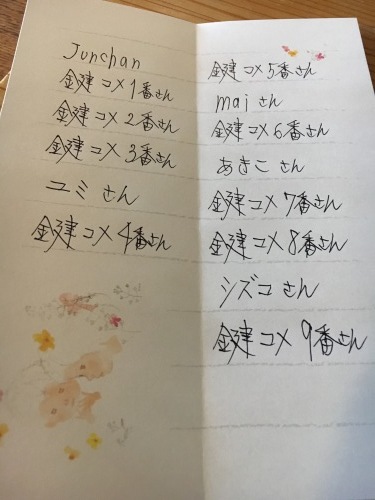 Junchan
鍵コメ1番さん
鍵コメ2番さん
鍵コメ3番さん
ユミさん
鍵コメ4番さん
鍵コメ5番さん
maiさん
鍵コメ6番さん
あきこさん
鍵コメ7番さん
鍵コメ8番さん
シズコさん
鍵コメ9番さん